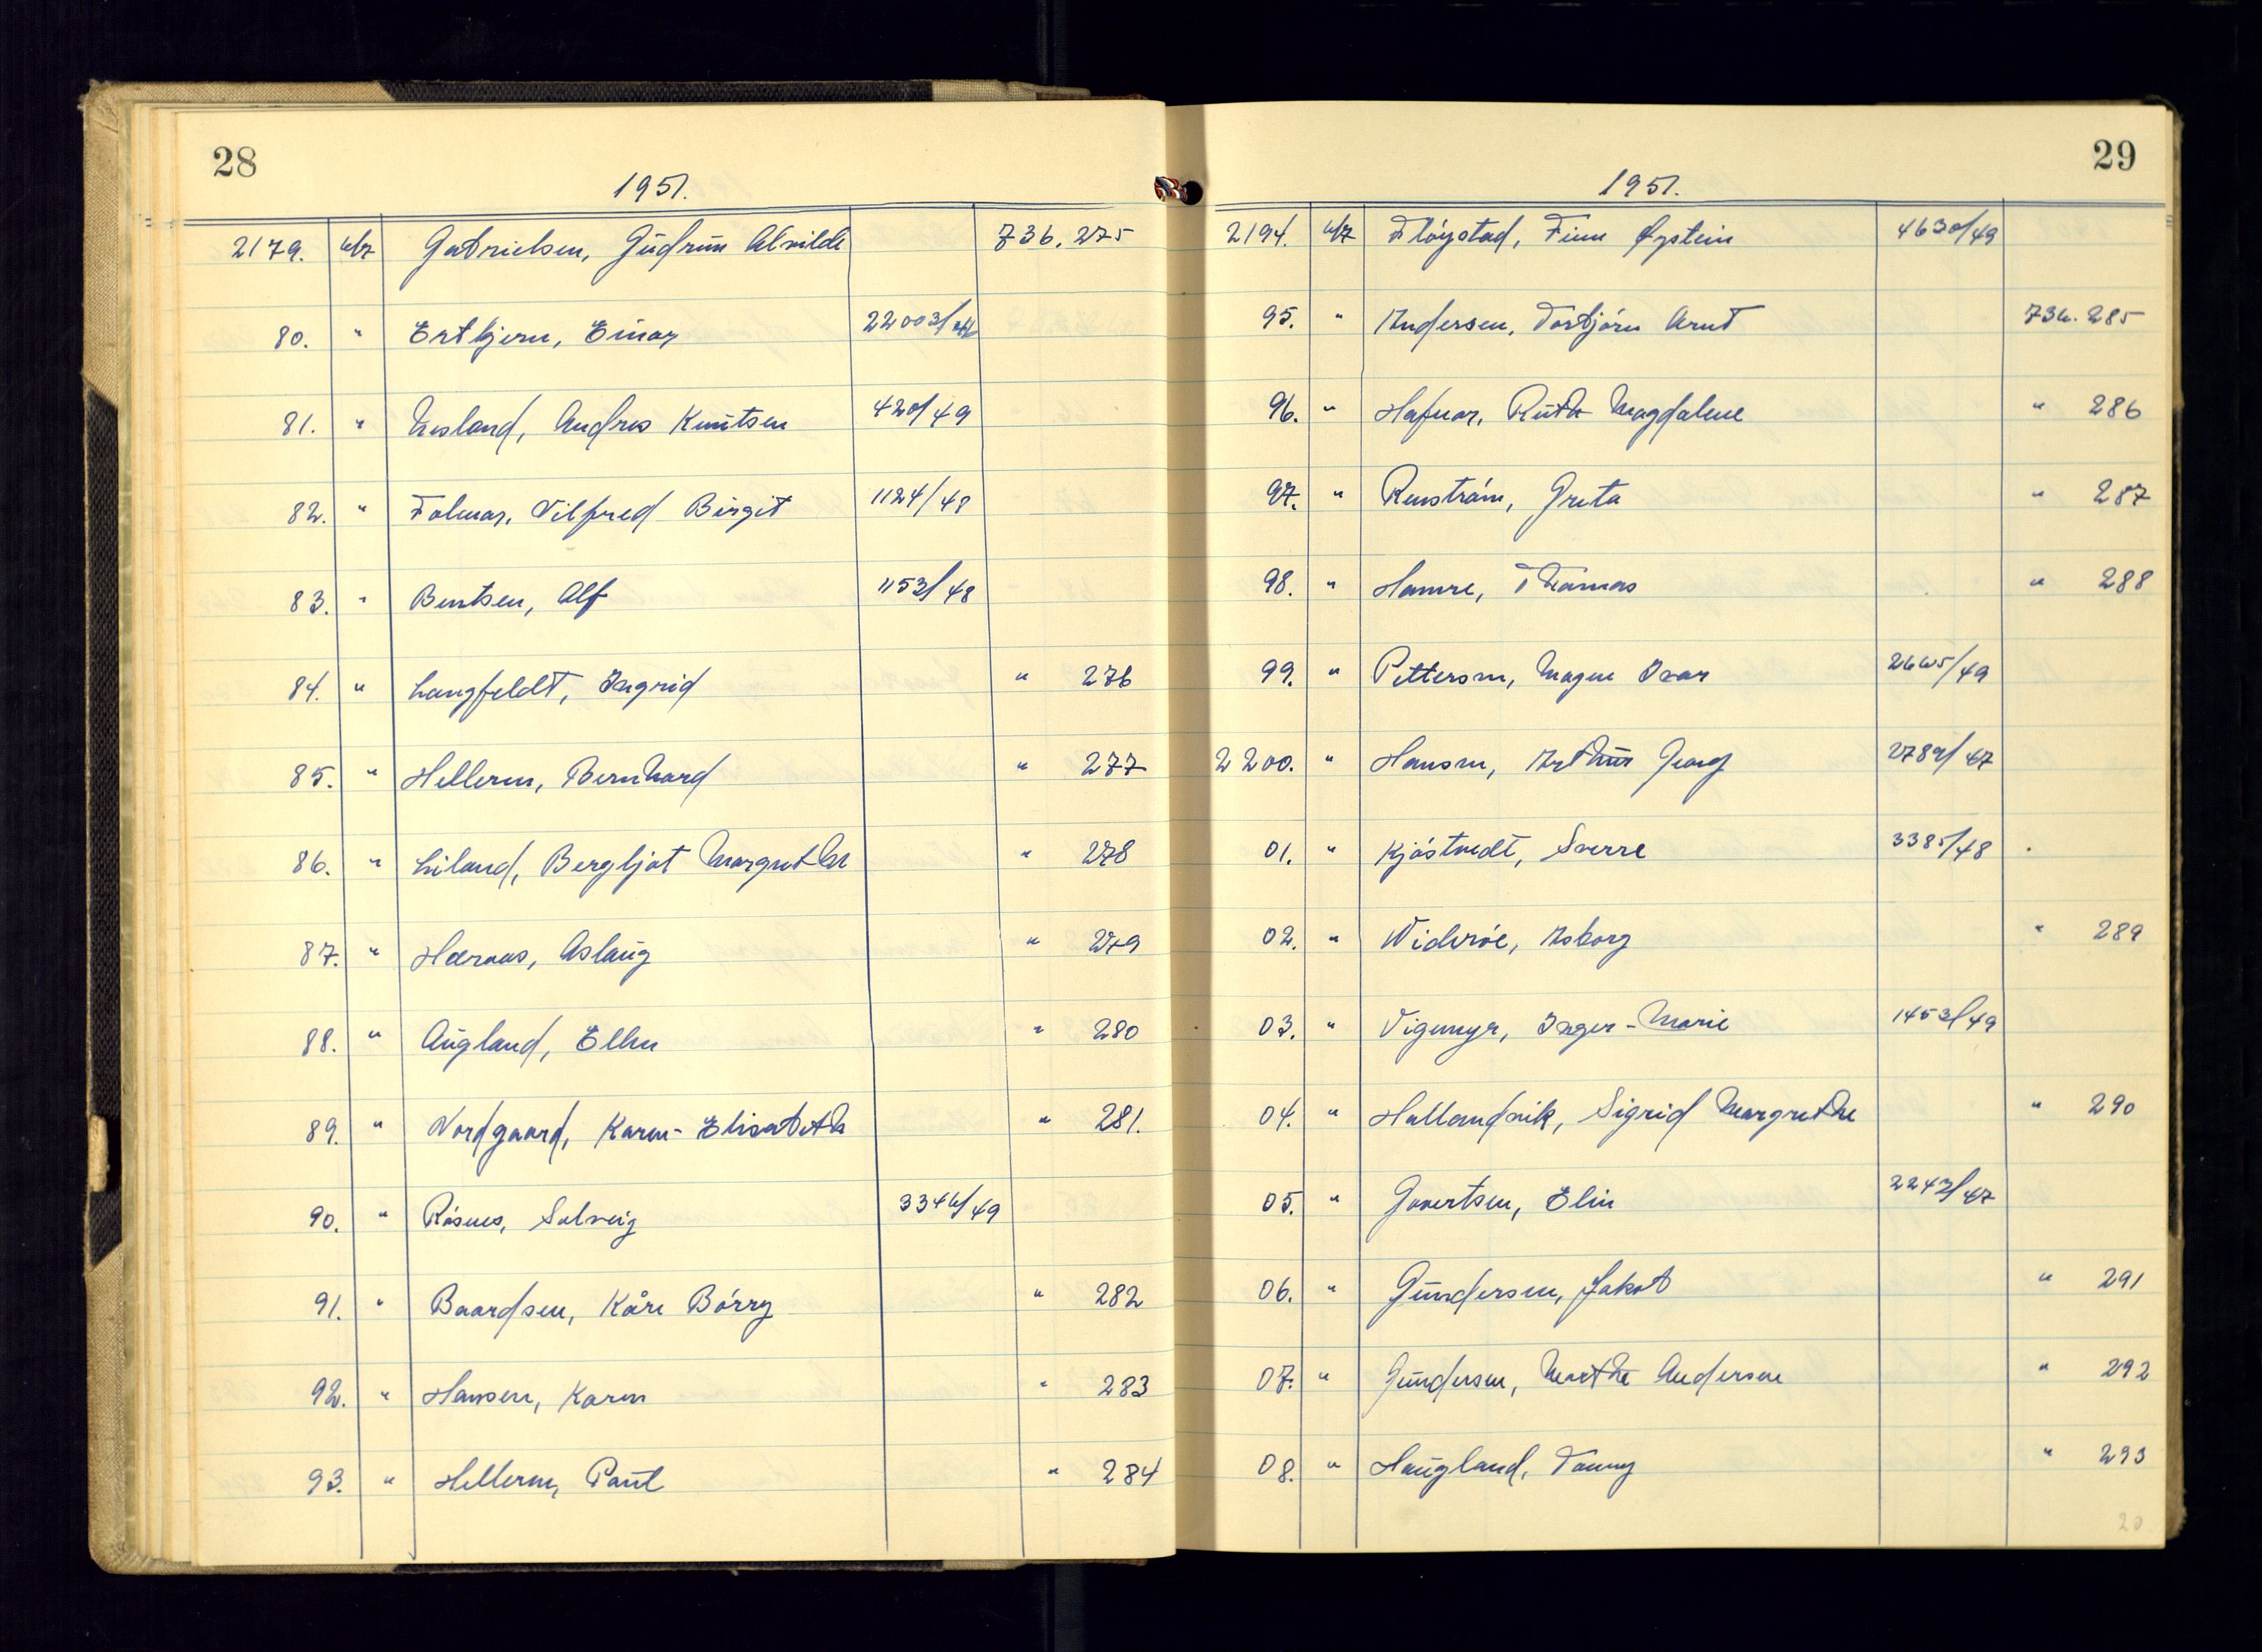 28
1951.
2179. 4/7 Gabrielsen, Gudrun Alvilde 736. 275
80. " Ertkjern, Einar 22003/46
81. " Uesland, Andres Knutsen 420/49
82. " Folmar, Vilfred Birgit 1124/48
83. " Bentsen, Alf 1153/48
84. " Langfeldt, Ingrid " 276
85. " Helleren, Bernhard " 277
86. " Liland, Bergljot Margrethe " 278
87. " Haraas, Aslaug " 279
88. " Augland, Ellen " 280
89. " Nordgaard, Karen-Elisabeth " 281.
90. " Røsnes, Solveig 3346/49
91. " Baardsen, Kåre Børry " 282
92. " Hansen, Karen " 283
93. " Helleren, Paul " 284
29
1951.
2194. 4/7 Fløystad, Finn Øystein 4630/49
95. " Andersen, Torbjørn Arnt 736. 285
96. " Hafnar, Ruth Magdalene " 286
97. " Renstrøm, Greta " 287
98. " Hamre, Thomas " 288
99. " Pettersen, Magne Ivar 2665/49
2200. " Hansen, Arthur Georg 2789/47
01. " Kjøstvedt, Sverre 3385/48
02. " Widerøe, Asborg " 289
03. " Vigemyr, Inger-Marie 1453/49
04. " Hallandvik, Sigrid Margrethe " 290
05. " Govertsen, Elin 2247/47
06. " Gundersen, Jakob " 291
07. " Gundersen, Marthe Andersen " 292
08. " Haugland, Tanny " 293
20